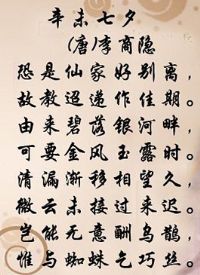 辛未七夕
(唐)李商隐
恐是仙家好别离，
故教迢递作佳期。
由来碧落银河畔，
可要金风玉露时。
清漏渐移相望久，
微云未接过来迟。
岂能无意酬乌鹊，
惟与蜘蛛乞巧丝。